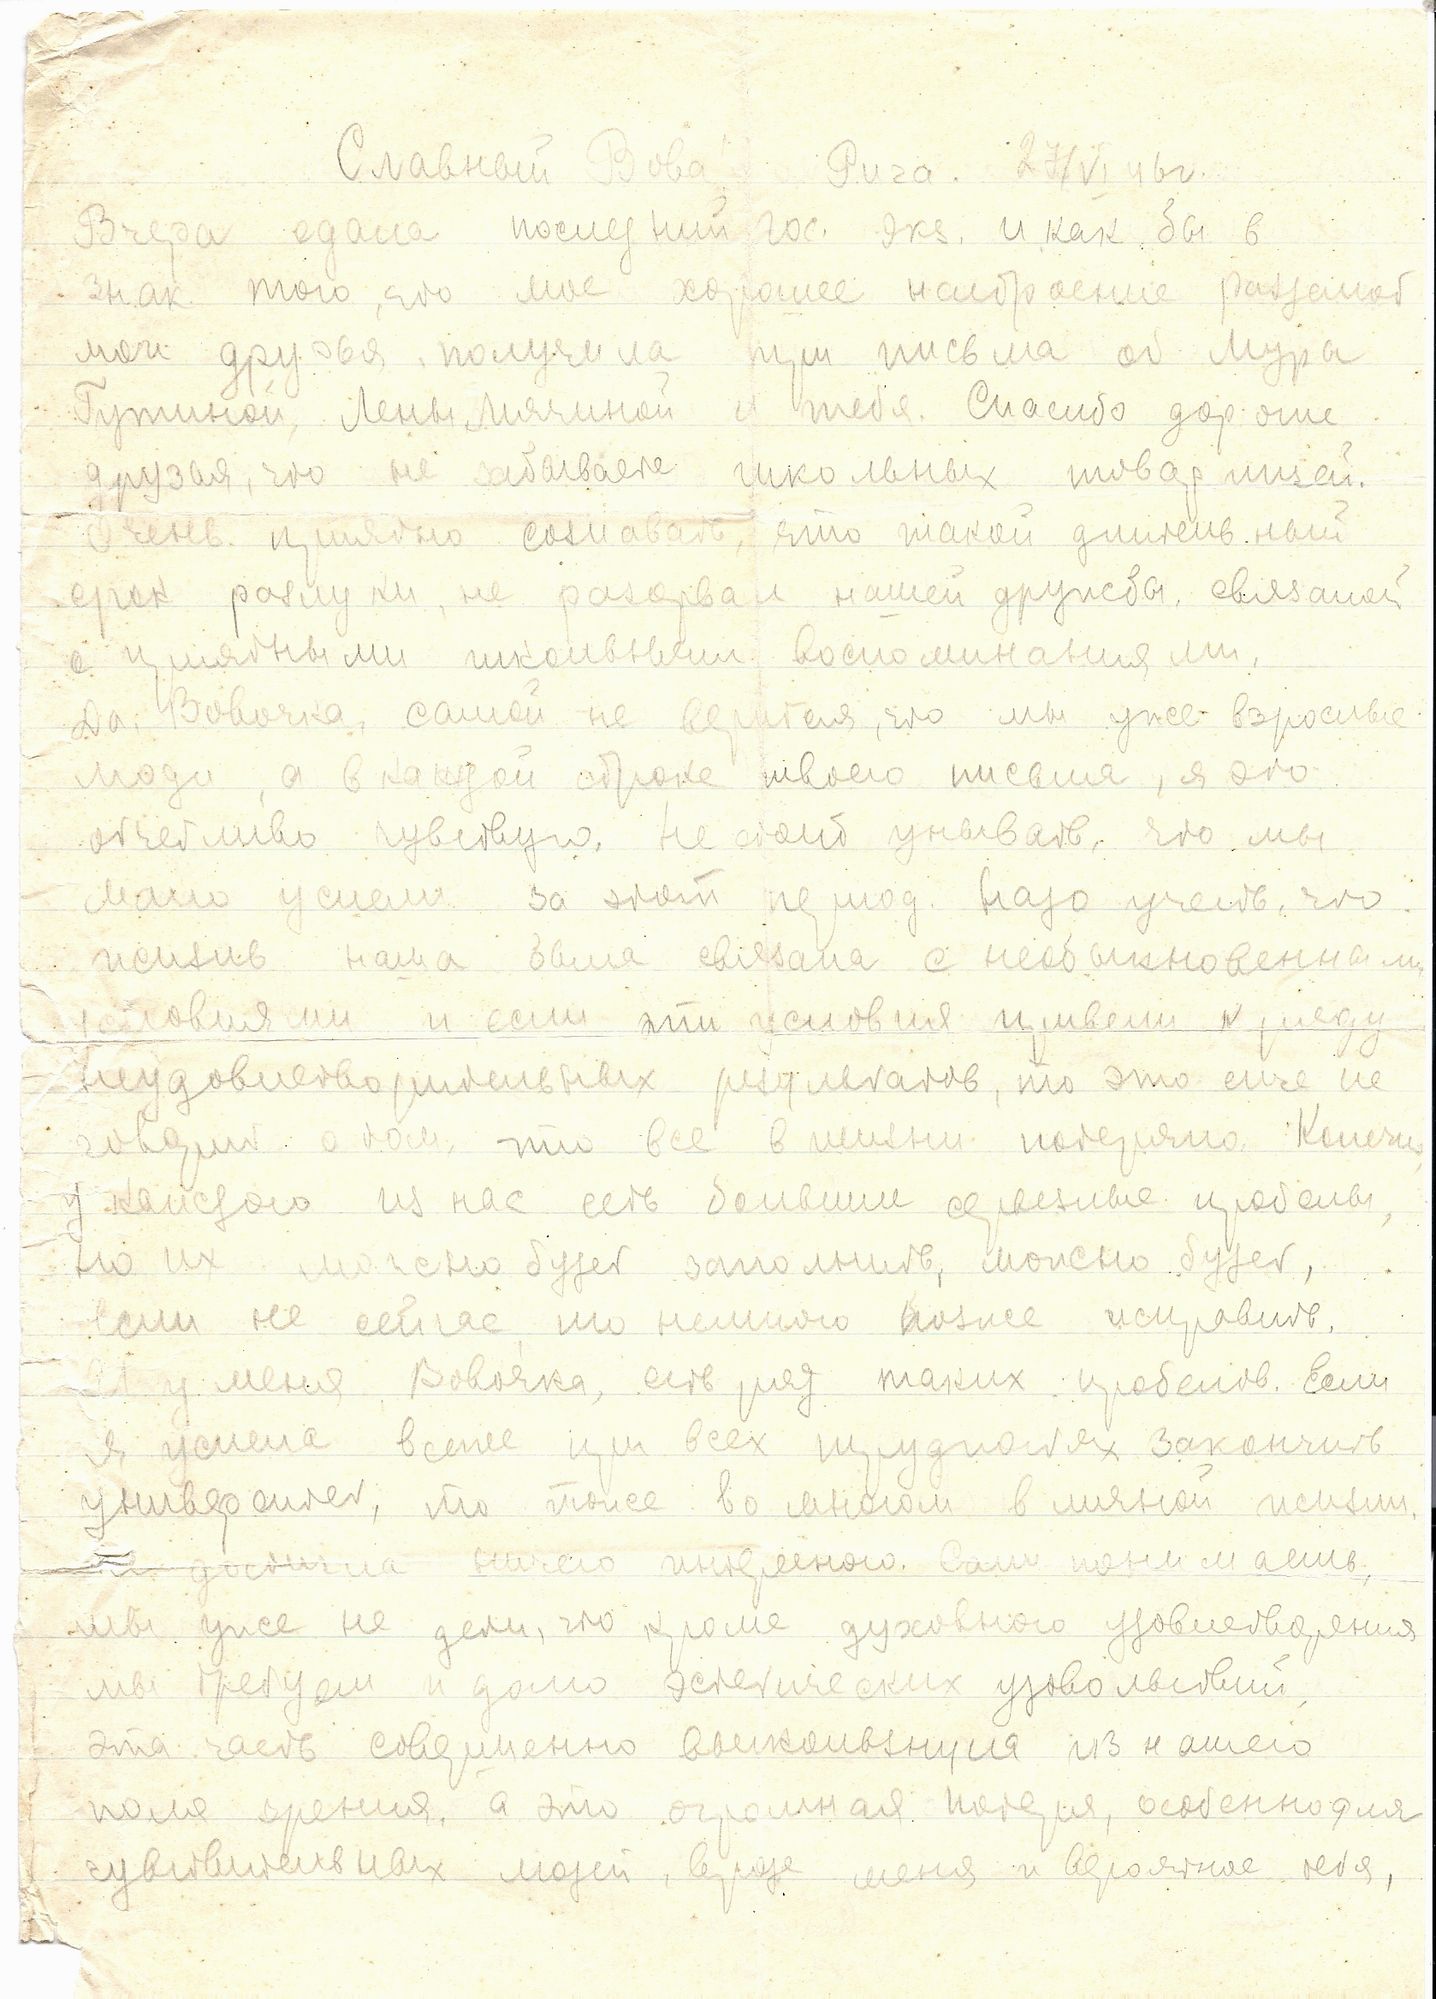 Славный Вова! Рига. 27/VI 46г.
Вчера сдала последний гос. экз. и как бы в
знак того, что мое хорошее настроение разделяют
мои друзья, получила три письма от Мура
Гутиной, Лены и тебя. Спасибо дорогие
друзья, что не забываете школьных товарищей.
Очень приятно сознавать, что такой длительный
срок разлуки, не разорвал нашей дружбы, связаной
с приятными школьными воспоминаниями.
Да, Вовочка, самой не верится, что мы уже взрослые
люди, а в каждой строке твоего письма, я это
отчетливо чувствую. Не стоит унывать, что мы
мало успели за этот период. Надо учесть, что
жизнь наша была связана с необыкновенными
условиями и если эти условия привели к ряду
неудовлетворительных результатов, то это еще не
говорит о том, что все в жизни потеряно. Конечно,
у каждого из нас есть большие серьезные пробелы,
но их можно будет заполнить, можно будет,
если не сейчас, то немного позже исправить.
И у меня, Вовочка, есть ряд таких пробелов. Если
я успела все же при всех трудностях закончить
университет, то тоже во многом в личной жизни
не достигла ничего интересного. Сам понимаешь,
мы уже не дети, что кроме духовного удовлетворения
мы требуем и эстетических удовольствий,
эта часть совершенно выскользнула из нашего
поля зрения, а это огромная потеря, особенно для
чувствительных людей, вроде меня и вероятное тебя,